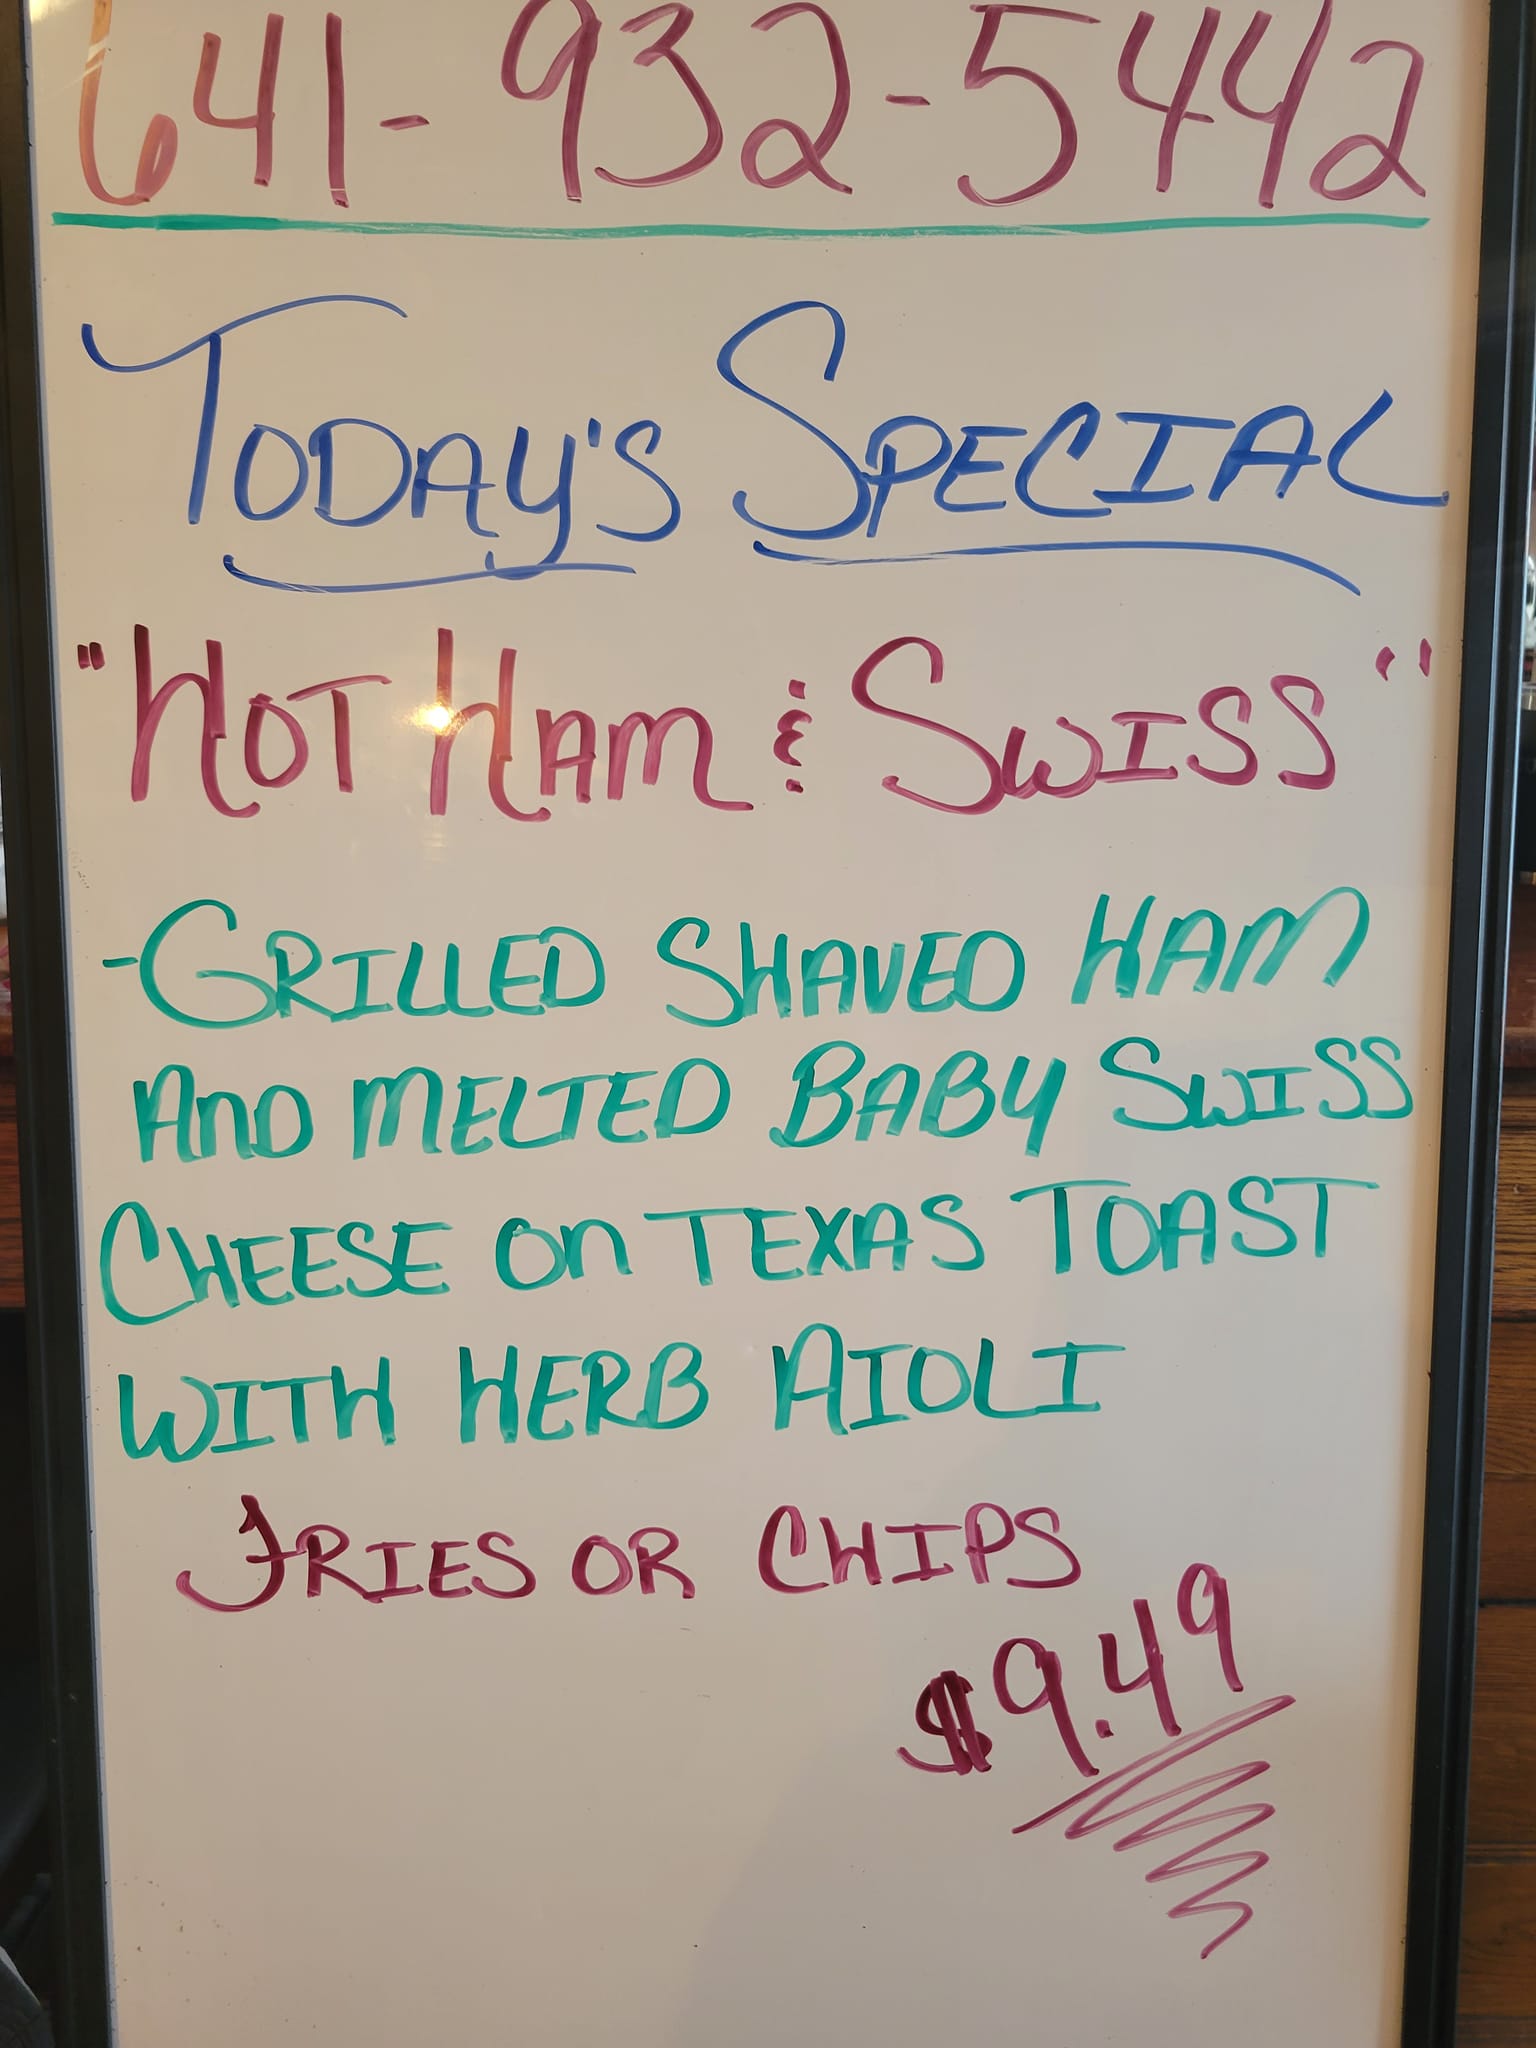 641-932-5442
TODAY'S SPECIAL
"HOT HAM & SWISS"
-GRILLED SHAVED HAM
AND MELTED BABY SWISS
CHEESE ON TEXAS TOAST
WITH HERB AIOLI
FRIES OR CHIPS
$9.49